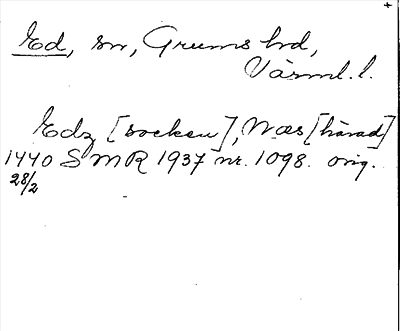 Ed, sn, Grums hd,
Värml. l.
Edz [socken], Næs [härad]
1440 SMR 1937 nr. 1098. orig.
28/2